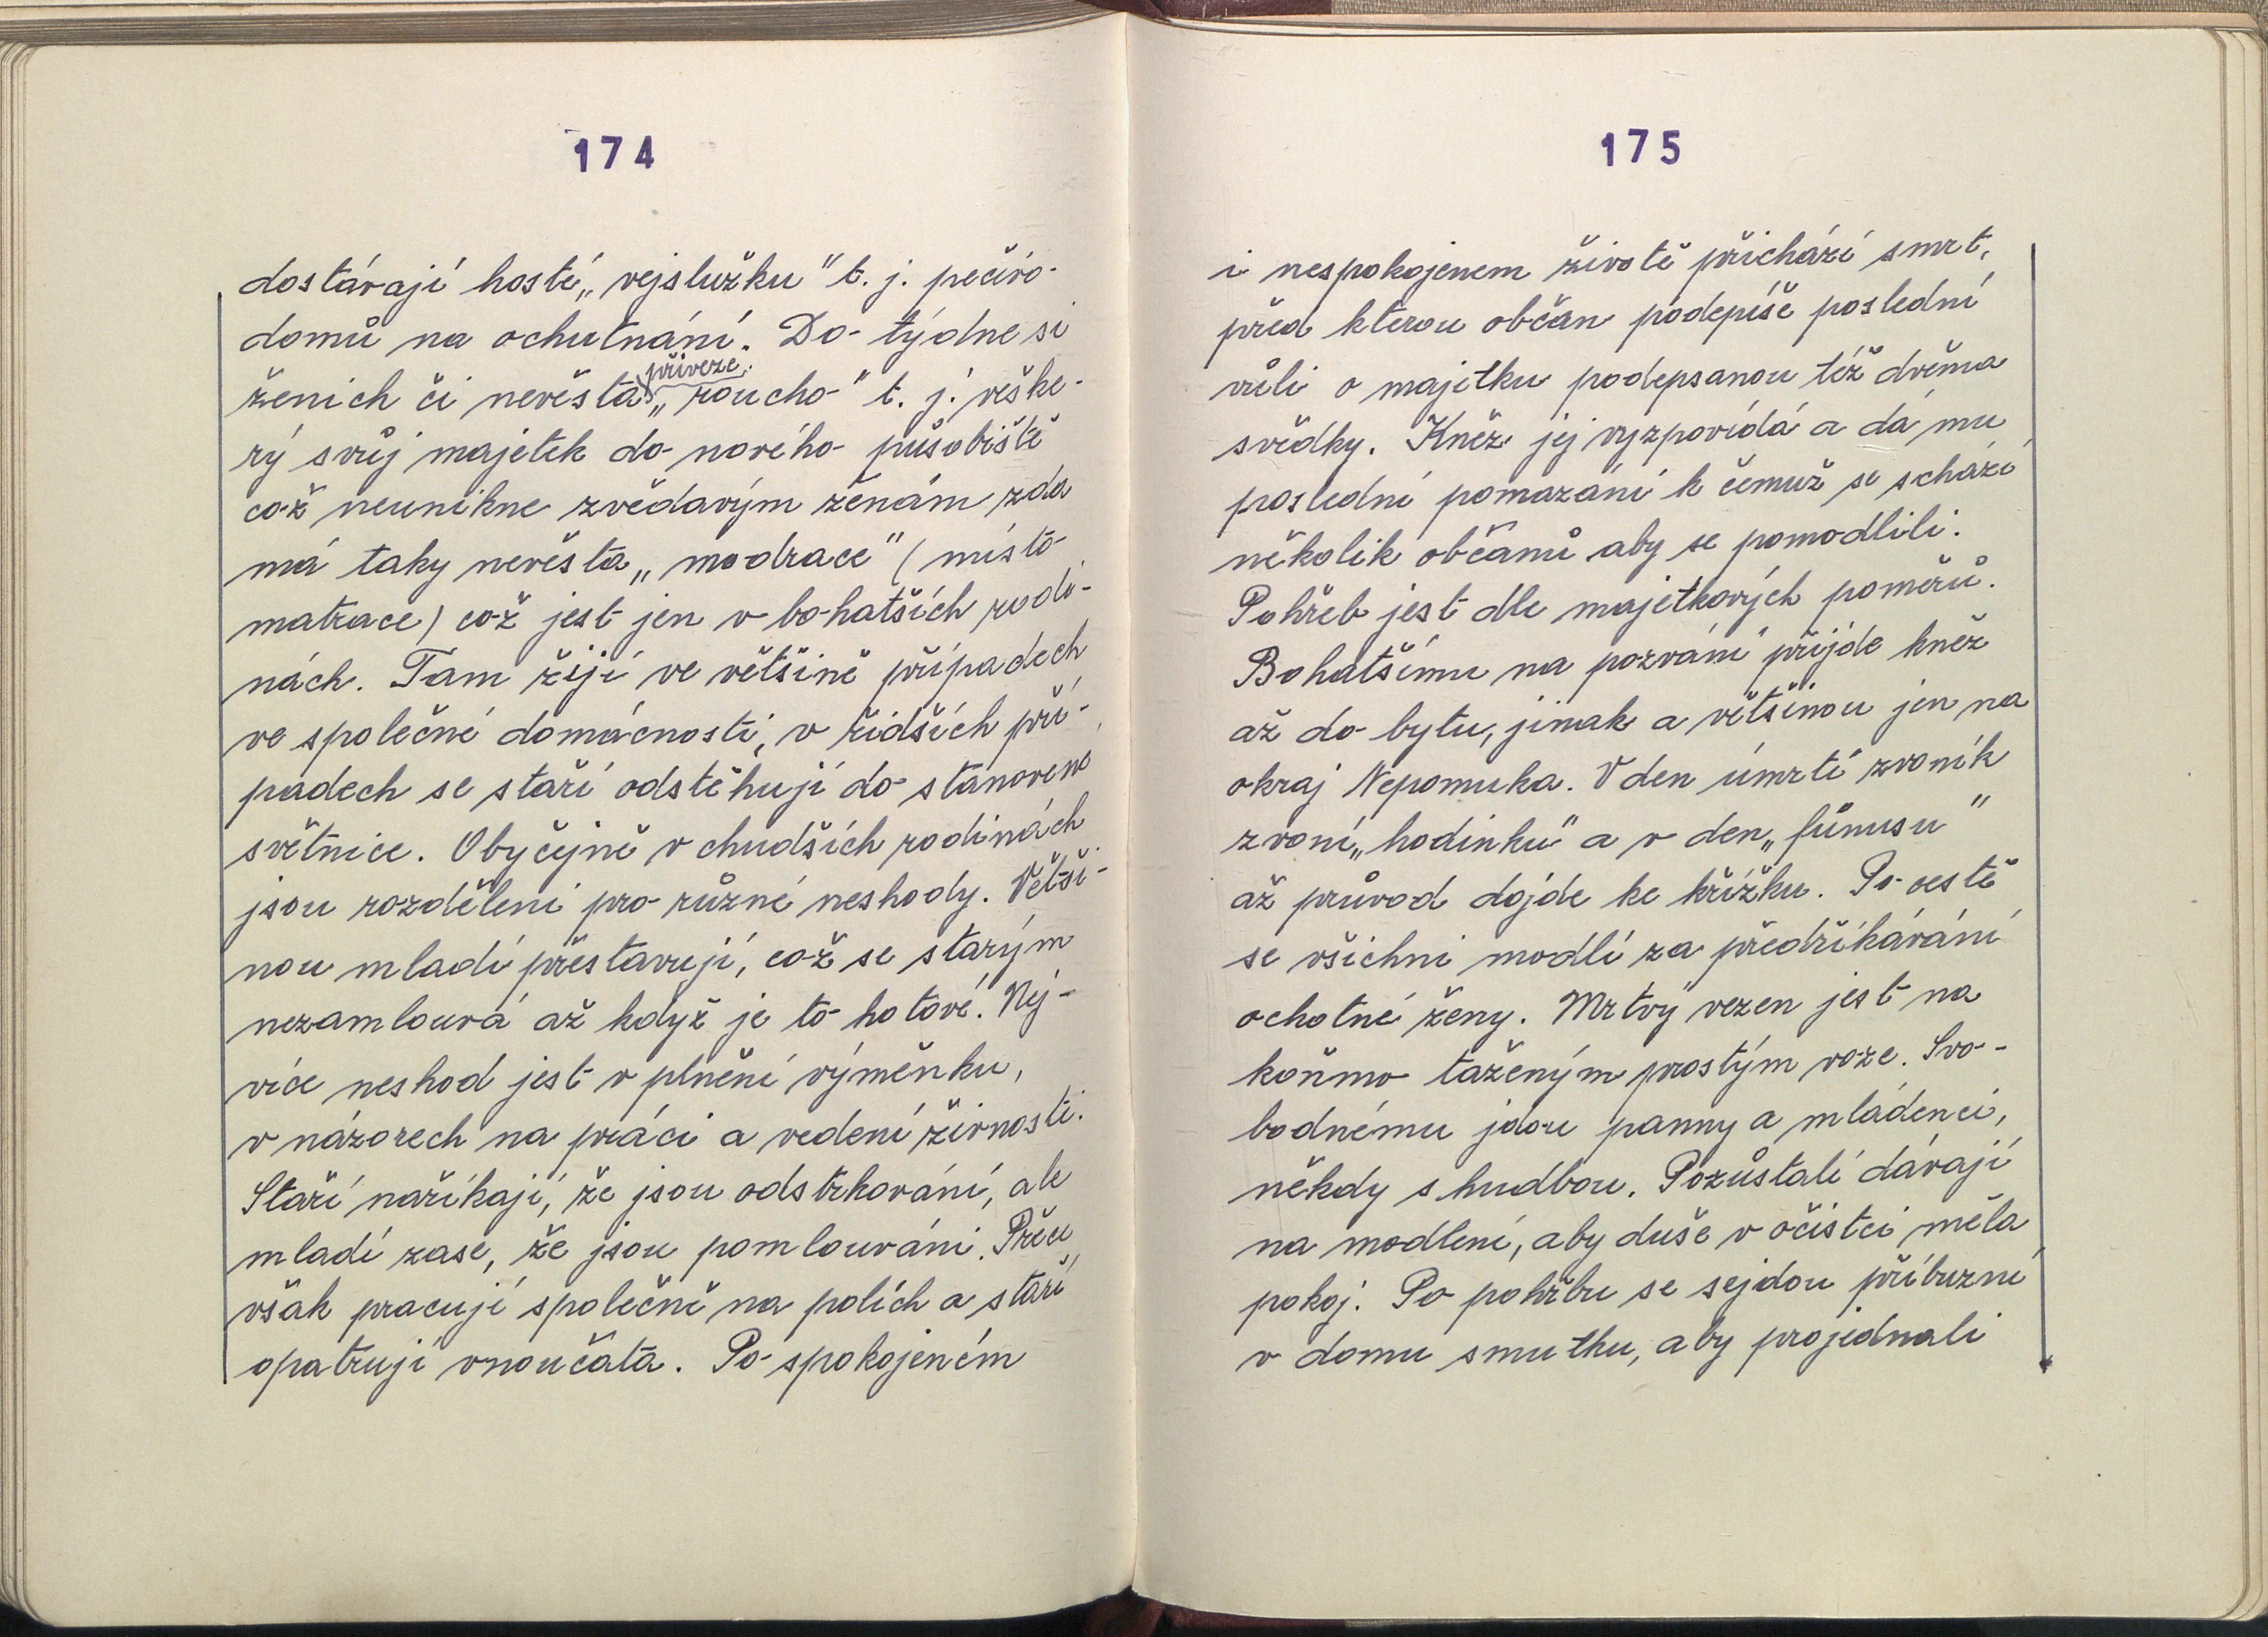 174
dostávají hosté „vejslužku" t. j. pečivo
domů na ochutnání. Do týdne si
přiveze
ženich či nevěsta „roucho" t. j. veške-
rý svůj majetek do nového působiště
což neunikne zvědavým ženám zda
má taky nevěsta „modrace" (místo
matrace) což jest jen v bohatších rodi-
nách. Tam žijí ve většině případech
ve společné domácnosti, v řidších pří-
padech se staří odstěhují do stanoveno
světnice. Obyčejně v chudších rodinách
jsou rozděleni pro různé neshody. Větši-
nou mladí přestavují, což se starým
nezamlouvá až když je to hotové. Nej-
více neshod jest v plnění výměnku,
v názorech na práci a vedení živnosti.
Staří naříkají, že jsou odstrkováni, ale
mladí zase, že jsou pomlouváni. Přeci
však pracují společně na polích a staří
opatrují vnoučata. Po spokojeném
175
i nespokojenem životě přichází smrt,
před kterou občan podepíše poslední
vůli o majetku podepsanou též dvěma
svědky. Kněz jej vyzpovídá a dá mu
poslední pomazání k čemuž se schází
několik občanů aby se pomodlili.
Pohřeb jest dle majetkových poměrů.
Bohatšímu na pozvání přijde kněz
až do bytu, jinak a většinou jen na
okraj Nepomuka. V den úmrtí zvoník
zvoní „hodinku" a v den „fůnusu"
až průvod dojde ke křížku. Po cestě
se všichni modlí za předříkávání
ochotné ženy. Mrtvý vezen jest na
koňmo taženým prostým voze. Svo-
bodnému jdou panny a mládenci,
někdy s hudbou. Pozůstalí dávají
na modlení, aby duše v očistci měla
pokoj. Po pohřbu se sejdou příbuzní
v domu smutku, aby projednali